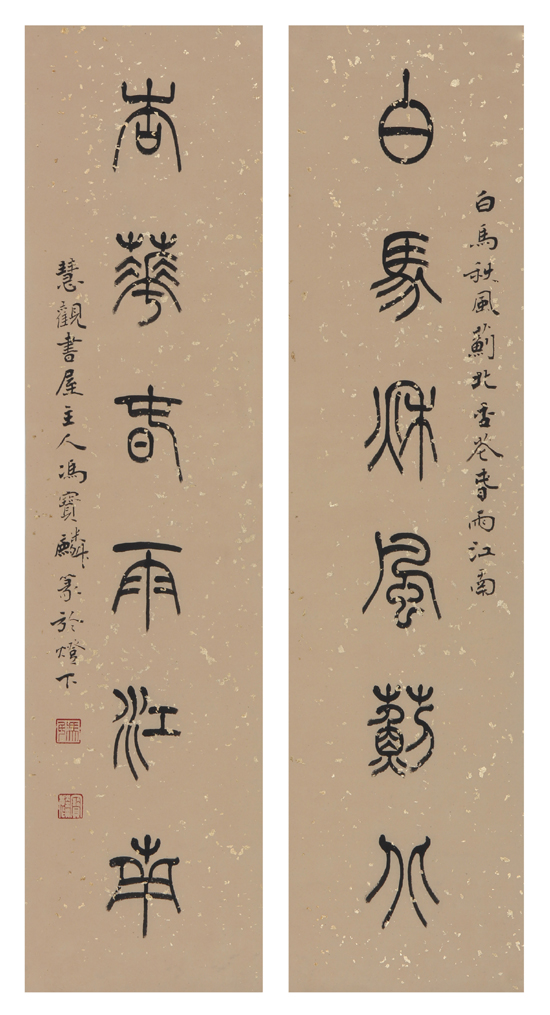 白馬秋風薊北杏花春雨江南
白馬秋風薊北
杏華春雨江南
慧觀書屋主人馮寶麟篆於燈下